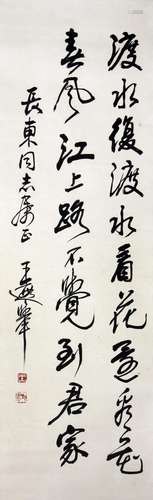 渡水復渡水看花還看花
春風江上路不覺到君家
長東同志屬正
王遐舉